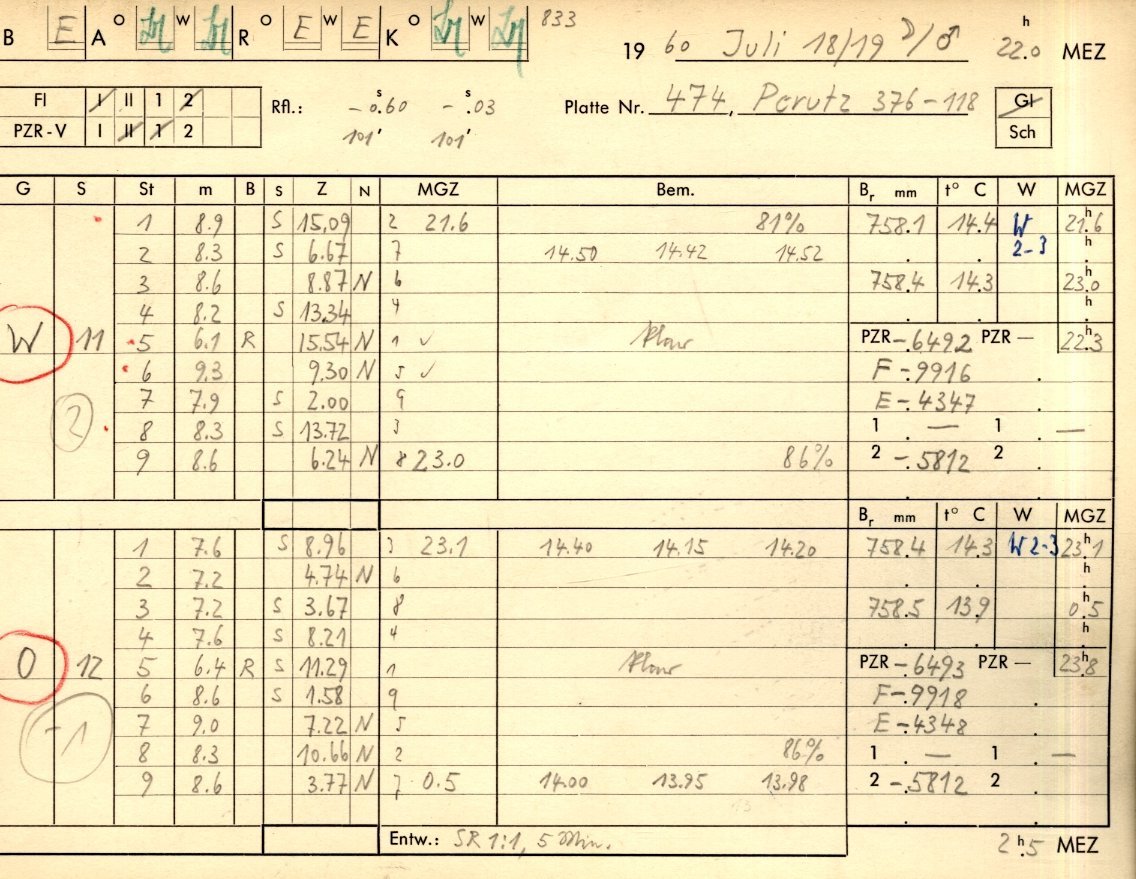 B E A O W R O E W E K O W 833
19 60 Juli 18/19 22.0 h MEZ
FI I II 1 2 Rfl.: -0.60 s -.03 s Platte Nr. 474, Perutz 376-118 Gl
PZR-V I II 1 2 101' 101' Sch
G S St m B s Z N MGZ Bem. Br mm t° C W MGZ
1 8.9 S 15.09 2 21.6 81% 758.1 14.4 W 21.6 h
2 8.3 S 6.67 7 14.50 14.42 14.52 2-3 h
3 8.6 8.87 N 6 758.4 14.3 23.0
4 8.2 S 13.34 4 h
W 11 5 6.1 R 15.54 N 1 ✓ klar PZR -.6492 PZR — 22.3 h
6 9.3 9.30 N 5 ✓ F -.9916
2 7 7.9 S 2.00 9 E -.4347
8 8.3 S 13.72 3 1 — 1 —
9 8.6 6.24 N 8 23.0 86% 2 -.5812 2
Br mm t° C W MGZ
1 7.6 S 8.96 3 23.1 14.40 14.15 14.20 758.4 14.3 W 2-3 23.1 h
2 7.2 4.74 N 6 h
3 7.2 S 3.67 8 758.5 13.9 0.5
4 7.6 S 8.21 4 h
O 12 5 6.4 R S 11.29 1 klar PZR -.6493 PZR — 23.8 h
6 8.6 S 1.58 9 F -.9918
-1 7 9.0 7.22 N 5 E -.4348
8 8.3 10.66 N 2 86% 1 — 1 —
9 8.6 3.77 N 7 0.5 14.00 13.95 13.98 2 -.5812 2
13
Entw.: SR 1:1, 5 Min. 2.5 h MEZ